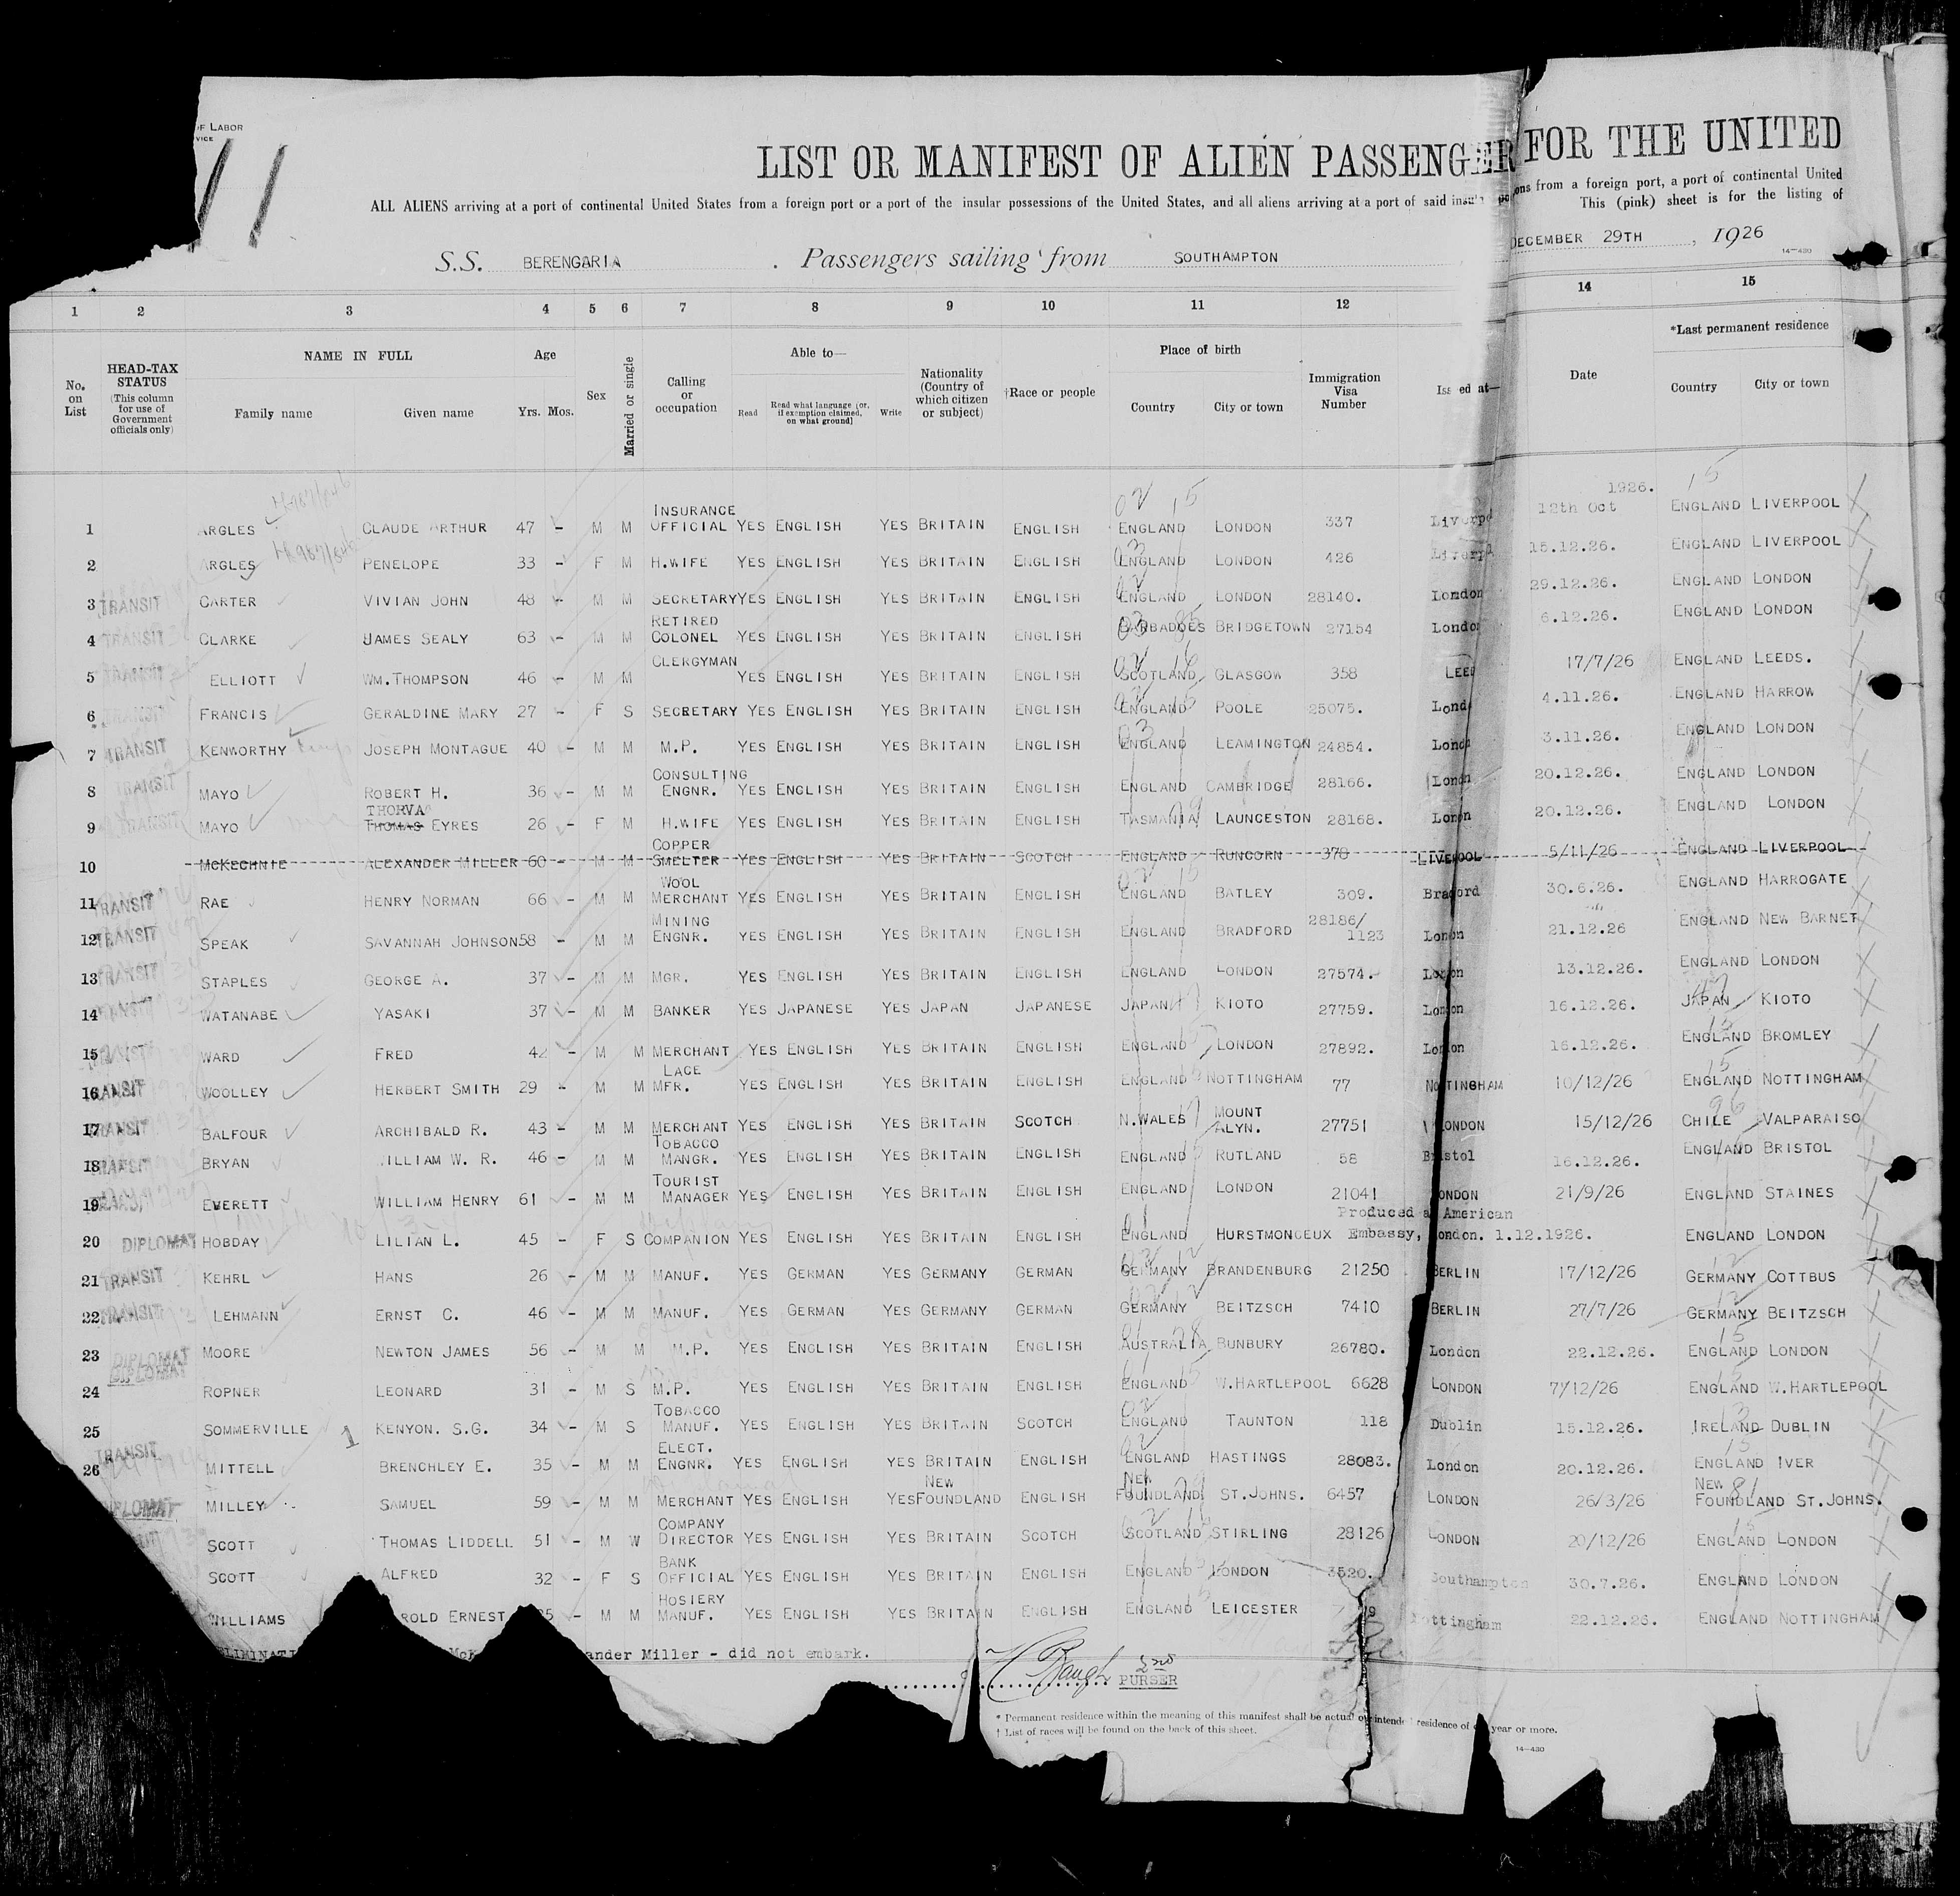 OF LABOR
VICE
11
LIST OR MANIFEST OF ALIEN PASSENGER FOR THE UNITED
ALL ALIENS arriving at a port of continental United States from a foreign port or a port of the insular possessions of the United States, and all aliens arriving at a port of said insul po ons from a foreign port, a port of continental United
This (pink) sheet is for the listing of
S.S. BERENGARIA . Passengers sailing from SOUTHAMPTON DECEMBER 29TH , 1926
14—430
1 2 3 4 5 6 7 8 9 10 11 12 14 15
No. on List HEAD-TAX STATUS (This column for use of Government officials only) NAME IN FULL Family name Given name Age Yrs. Mos. Sex Married or single Calling or occupation Able to— Read Read what language (or, if exemption claimed, on what ground) Write Nationality (Country of which citizen or subject) †Race or people Place of birth Country City or town Immigration Visa Number Iss ed at— Date *Last permanent residence Country City or town
1926.
1 ARGLES CLAUDE ARTHUR 47 - M M INSURANCE OFFICIAL YES ENGLISH YES BRITAIN ENGLISH ENGLAND LONDON 337 Liverpo 12th Oct ENGLAND LIVERPOOL
2 ARGLES PENELOPE 33 - F M H.WIFE YES ENGLISH YES BRITAIN ENGLISH ENGLAND LONDON 426 Liverpl 15.12.26. ENGLAND LIVERPOOL
3 TRANSIT CARTER VIVIAN JOHN 48 - M M SECRETARY YES ENGLISH YES BRITAIN ENGLISH ENGLAND LONDON 28140. London 29.12.26. ENGLAND LONDON
4 TRANSIT CLARKE JAMES SEALY 63 - M M RETIRED COLONEL YES ENGLISH YES BRITAIN ENGLISH BARBADOES BRIDGETOWN 27154 London 6.12.26. ENGLAND LONDON
5 TRANSIT ELLIOTT WM.THOMPSON 46 - M M CLERGYMAN YES ENGLISH YES BRITAIN ENGLISH SCOTLAND GLASGOW 358 LEED 17/7/26 ENGLAND LEEDS.
6 TRANSIT FRANCIS GERALDINE MARY 27 - F S SECRETARY YES ENGLISH YES BRITAIN ENGLISH ENGLAND POOLE 25075. Lond 4.11.26. ENGLAND HARROW
7 TRANSIT KENWORTHY JOSEPH MONTAGUE 40 - M M M.P. YES ENGLISH YES BRITAIN ENGLISH ENGLAND LEAMINGTON 24854. Lond 3.11.26. ENGLAND LONDON
8 TRANSIT MAYO ROBERT H. 36 - M M CONSULTING ENGNR. YES ENGLISH YES BRITAIN ENGLISH ENGLAND CAMBRIDGE 28166. London 20.12.26. ENGLAND LONDON
THORVA
9 TRANSIT MAYO THOMAS EYRES 26 - F M H.WIFE YES ENGLISH YES BRITAIN ENGLISH TASMANIA LAUNCESTON 28168. London 20.12.26. ENGLAND LONDON
10 McKECHNIE ALEXANDER MILLER 60 - M M COPPER SMELTER YES ENGLISH YES BRITAIN SCOTCH ENGLAND RUNCORN 378 LIVERPOOL 5/11/26 ENGLAND LIVERPOOL
11 TRANSIT RAE HENRY NORMAN 66 - M M WOOL MERCHANT YES ENGLISH YES BRITAIN ENGLISH ENGLAND BATLEY 309. Bradford 30.6.26. ENGLAND HARROGATE
12 TRANSIT SPEAK SAVANNAH JOHNSON 58 - M M MINING ENGNR. YES ENGLISH YES BRITAIN ENGLISH ENGLAND BRADFORD 28186/1123 London 21.12.26 ENGLAND NEW BARNET
13 TRANSIT STAPLES GEORGE A. 37 - M M MGR. YES ENGLISH YES BRITAIN ENGLISH ENGLAND LONDON 27574. London 13.12.26. ENGLAND LONDON
14 TRANSIT WATANABE YASAKI 37 - M M BANKER YES JAPANESE YES JAPAN JAPANESE JAPAN KIOTO 27759. London 16.12.26. JAPAN KIOTO
15 WARD FRED 42 - M M MERCHANT YES ENGLISH YES BRITAIN ENGLISH ENGLAND LONDON 27892. London 16.12.26. ENGLAND BROMLEY
16 TRANSIT WOOLLEY HERBERT SMITH 29 - M M LACE MFR. YES ENGLISH YES BRITAIN ENGLISH ENGLAND NOTTINGHAM 77 NOTTINGHAM 10/12/26 ENGLAND NOTTINGHAM
17 TRANSIT BALFOUR ARCHIBALD R. 43 - M M MERCHANT YES ENGLISH YES BRITAIN SCOTCH N.WALES MOUNT ALYN. 27751 LONDON 15/12/26 CHILE VALPARAISO
18 TRANSIT BRYAN WILLIAM W. R. 46 - M M TOBACCO MANGR. YES ENGLISH YES BRITAIN ENGLISH ENGLAND RUTLAND 58 Bristol 16.12.26. ENGLAND BRISTOL
19 EVERETT WILLIAM HENRY 61 - M M TOURIST MANAGER YES ENGLISH YES BRITAIN ENGLISH ENGLAND LONDON 21041 LONDON 21/9/26 ENGLAND STAINES
Produced at American
20 DIPLOMAT HOBDAY LILIAN L. 45 - F S COMPANION YES ENGLISH YES BRITAIN ENGLISH ENGLAND HURSTMONCEUX Embassy, London. 1.12.1926. ENGLAND LONDON
21 TRANSIT KEHRL HANS 26 - M M MANUF. YES GERMAN YES GERMANY GERMAN GERMANY BRANDENBURG 21250 BERLIN 17/12/26 GERMANY COTTBUS
22 TRANSIT LEHMANN ERNST C. 46 - M M MANUF. YES GERMAN YES GERMANY GERMAN GERMANY BEITZSCH 7410 BERLIN 27/7/26 GERMANY BEITZSCH
23 DIPLOMAT MOORE NEWTON JAMES 56 - M M M.P. YES ENGLISH YES BRITAIN ENGLISH AUSTRALIA BUNBURY 26780. London 22.12.26. ENGLAND LONDON
24 DIPLOMAT ROPNER LEONARD 31 - M S M.P. YES ENGLISH YES BRITAIN ENGLISH ENGLAND W.HARTLEPOOL 6628 LONDON 7/12/26 ENGLAND W.HARTLEPOOL
25 SOMMERVILLE 1 KENYON. S.G. 34 - M S TOBACCO MANUF. YES ENGLISH YES BRITAIN SCOTCH ENGLAND TAUNTON 118 Dublin 15.12.26. IRELAND DUBLIN
26 TRANSIT MITTELL BRENCHLEY E. 35 - M M ELECT. ENGNR. YES ENGLISH YES BRITAIN ENGLISH ENGLAND HASTINGS 28083. London 20.12.26. ENGLAND IVER
DIPLOMAT MILLEY SAMUEL 59 - M M MERCHANT YES ENGLISH YES NEW FOUNDLAND ENGLISH NEW FOUNDLAND ST.JOHNS. 6457 LONDON 26/3/26 NEW FOUNDLAND ST.JOHNS.
SCOTT THOMAS LIDDELL 51 - M W COMPANY DIRECTOR YES ENGLISH YES BRITAIN SCOTCH SCOTLAND STIRLING 28126 LONDON 20/12/26 ENGLAND LONDON
SCOTT ALFRED 32 - F S BANK OFFICIAL YES ENGLISH YES BRITAIN ENGLISH ENGLAND LONDON 3520. Southampton 30.7.26. ENGLAND LONDON
WILLIAMS ROLD ERNEST 35 - M M HOSIERY MANUF. YES ENGLISH YES BRITAIN ENGLISH ENGLAND LEICESTER Nottingham 22.12.26. ENGLAND NOTTINGHAM
ELIMINATI McK ander Miller - did not embark.
2nd PURSER
* Permanent residence within the meaning of this manifest shall be actual or intended residence of one year or more.
† List of races will be found on the back of this sheet.
14—430